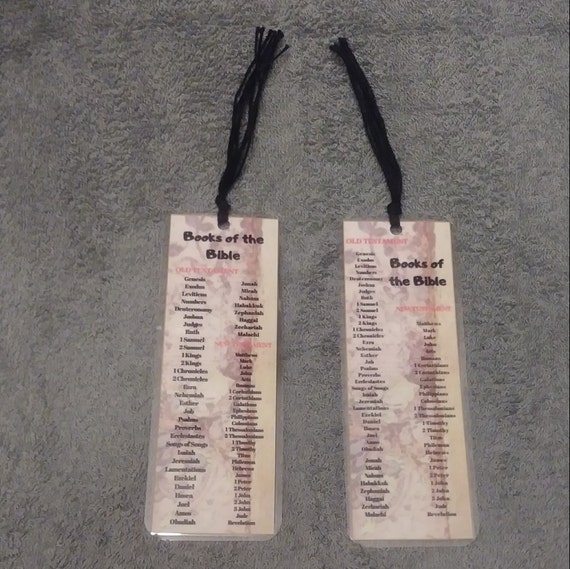 Books of the
Bible
OLD TESTAMENT
Genesis
Exodus
Leviticus
Numbers
Deuteronomy
Joshua
Judges
Ruth
1 Samuel
2 Samuel
1 Kings
2 Kings
1 Chronicles
2 Chronicles
Ezra
Nehemiah
Esther
Job
Psalms
Proverbs
Ecclesiastes
Songs of Songs
Isaiah
Jeremiah
Lamentations
Ezekiel
Daniel
Hosea
Joel
Amos
Obadiah
Jonah
Micah
Nahum
Habakkuk
Zephaniah
Haggai
Zechariah
Malachi
NEW TESTAMENT
Matthews
Mark
Luke
John
Acts
Romans
1 Corinthians
2 Corinthians
Galatians
Ephesians
Philippians
Colossians
1 Thessalonians
2 Thessalonians
1 Timothy
2 Timothy
Titus
Philemon
Hebrews
James
1 Peter
2 Peter
1 John
2 John
3 John
Jude
Revelation
OLD TESTAMENT
Genesis
Exodus
Leviticus
Numbers
Deuteronomy
Joshua
Judges
Ruth
1 Samuel
2 Samuel
1 Kings
2 Kings
1 Chronicles
2 Chronicles
Ezra
Nehemiah
Esther
Job
Psalms
Proverbs
Ecclesiastes
Songs of Songs
Isaiah
Jeremiah
Lamentations
Ezekiel
Daniel
Hosea
Joel
Amos
Obadiah
Jonah
Micah
Nahum
Habakkuk
Zephaniah
Haggai
Zechariah
Malachi
Books of
the Bible
NEW TESTAMENT
Matthews
Mark
Luke
John
Acts
Romans
1 Corinthians
2 Corinthians
Galatians
Ephesians
Philippians
Colossians
1 Thessalonians
2 Thessalonians
1 Timothy
2 Timothy
Titus
Philemon
Hebrews
James
1 Peter
2 Peter
1 John
2 John
3 John
Jude
Revelation